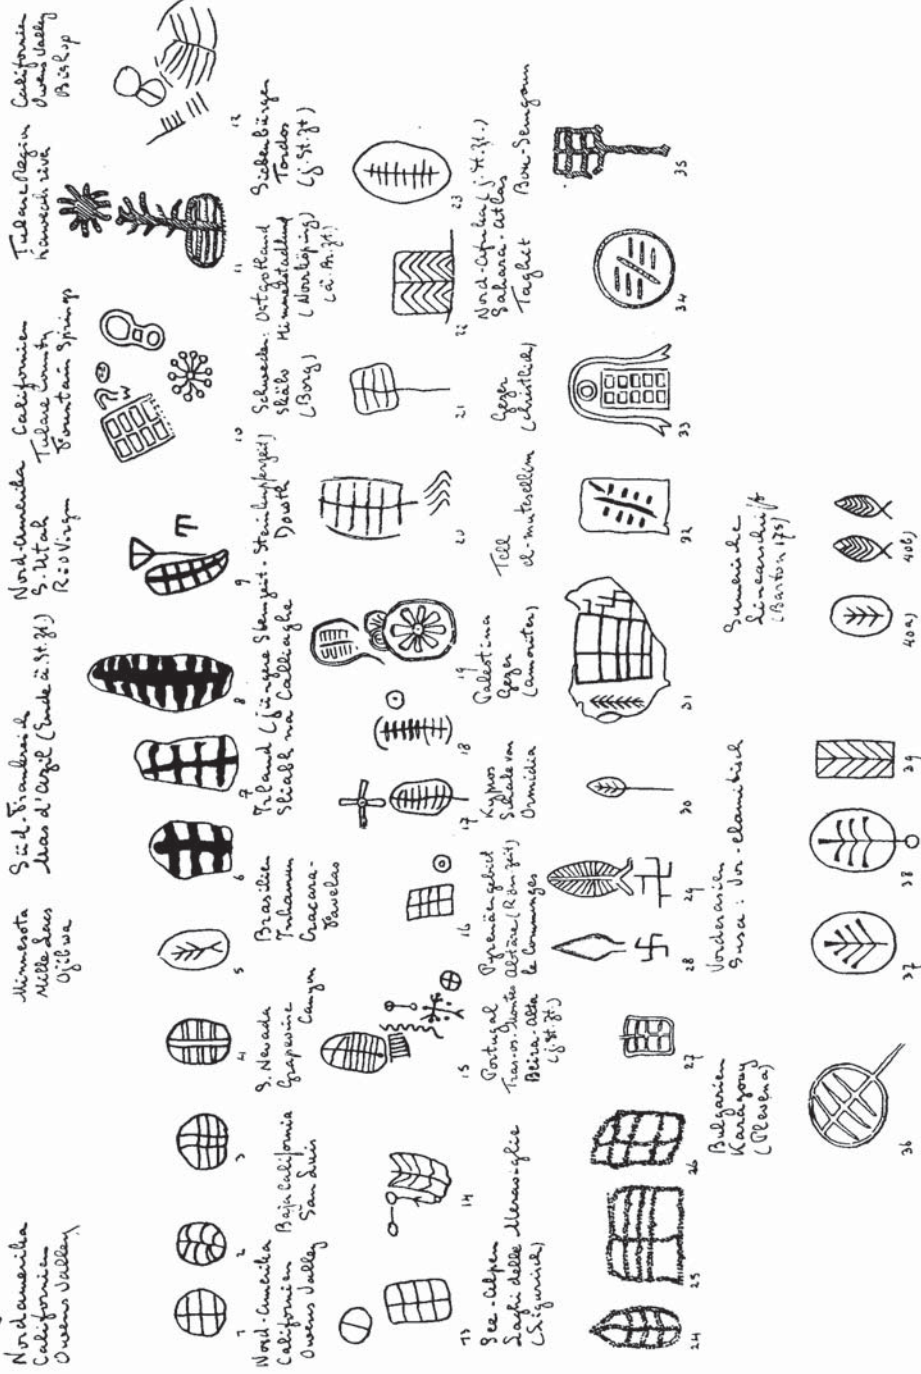 Nordamerika
Californien
Owens Valley
Minnesota
Mille Lacs
Ojibwa
Süd-Frankreich
Mas d'Azil (Ende ä. St. Zt)
Nord-Amerika
S. Utah
Rio Virgin
Californien
Tulare County
Fountain Springs
Tulare Region
Kaweah river
Californien
Owens Valley
Bishop
1
2
3
4
5
6
7
8
9
10
11
12
Nord-Amerika
Californien
Owens Valley
Baja California
San Luis
S. Nevada
Grapevine
Canyon
Brasilien
Inhamun
Favelas
Irland (jüngere Steinzeit - Steinkupferzeit)
Sliabh na Calliaghe
Dowth
Schweden:
(Borg)
Ostgotland
Himmelstadlund
(Norrköping)
(ä. Br. Zt.)
Siebenbürgen
Tordos
(j. St. Zt)
13
14
15
16
17
18
19
20
21
22
23
See-Alpen
Laghi delle Meraviglie
(Ligurisch)
Portugal
Tras-os-Montes
Beira-Alta
(j. St. Zt.)
Pyrenäengebiet
Altäre (Röm. Zeit)
Kypros
Schale von
Ormidia
Palestina
Gezer
(amoriter)
Tell
el-mutesellim
Gezer
(christlich)
Nord-Afrika (j. St. Zt.)
Sahara-Atlas
Taghit
24
25
26
27
28
29
30
31
32
33
34
35
Bulgarien
(Plevena)
Vorderasien
Susa: Vor-elamitisch
Sumerische
Linearschrift
(Barton 175)
36
37
38
39
40a)
40b)